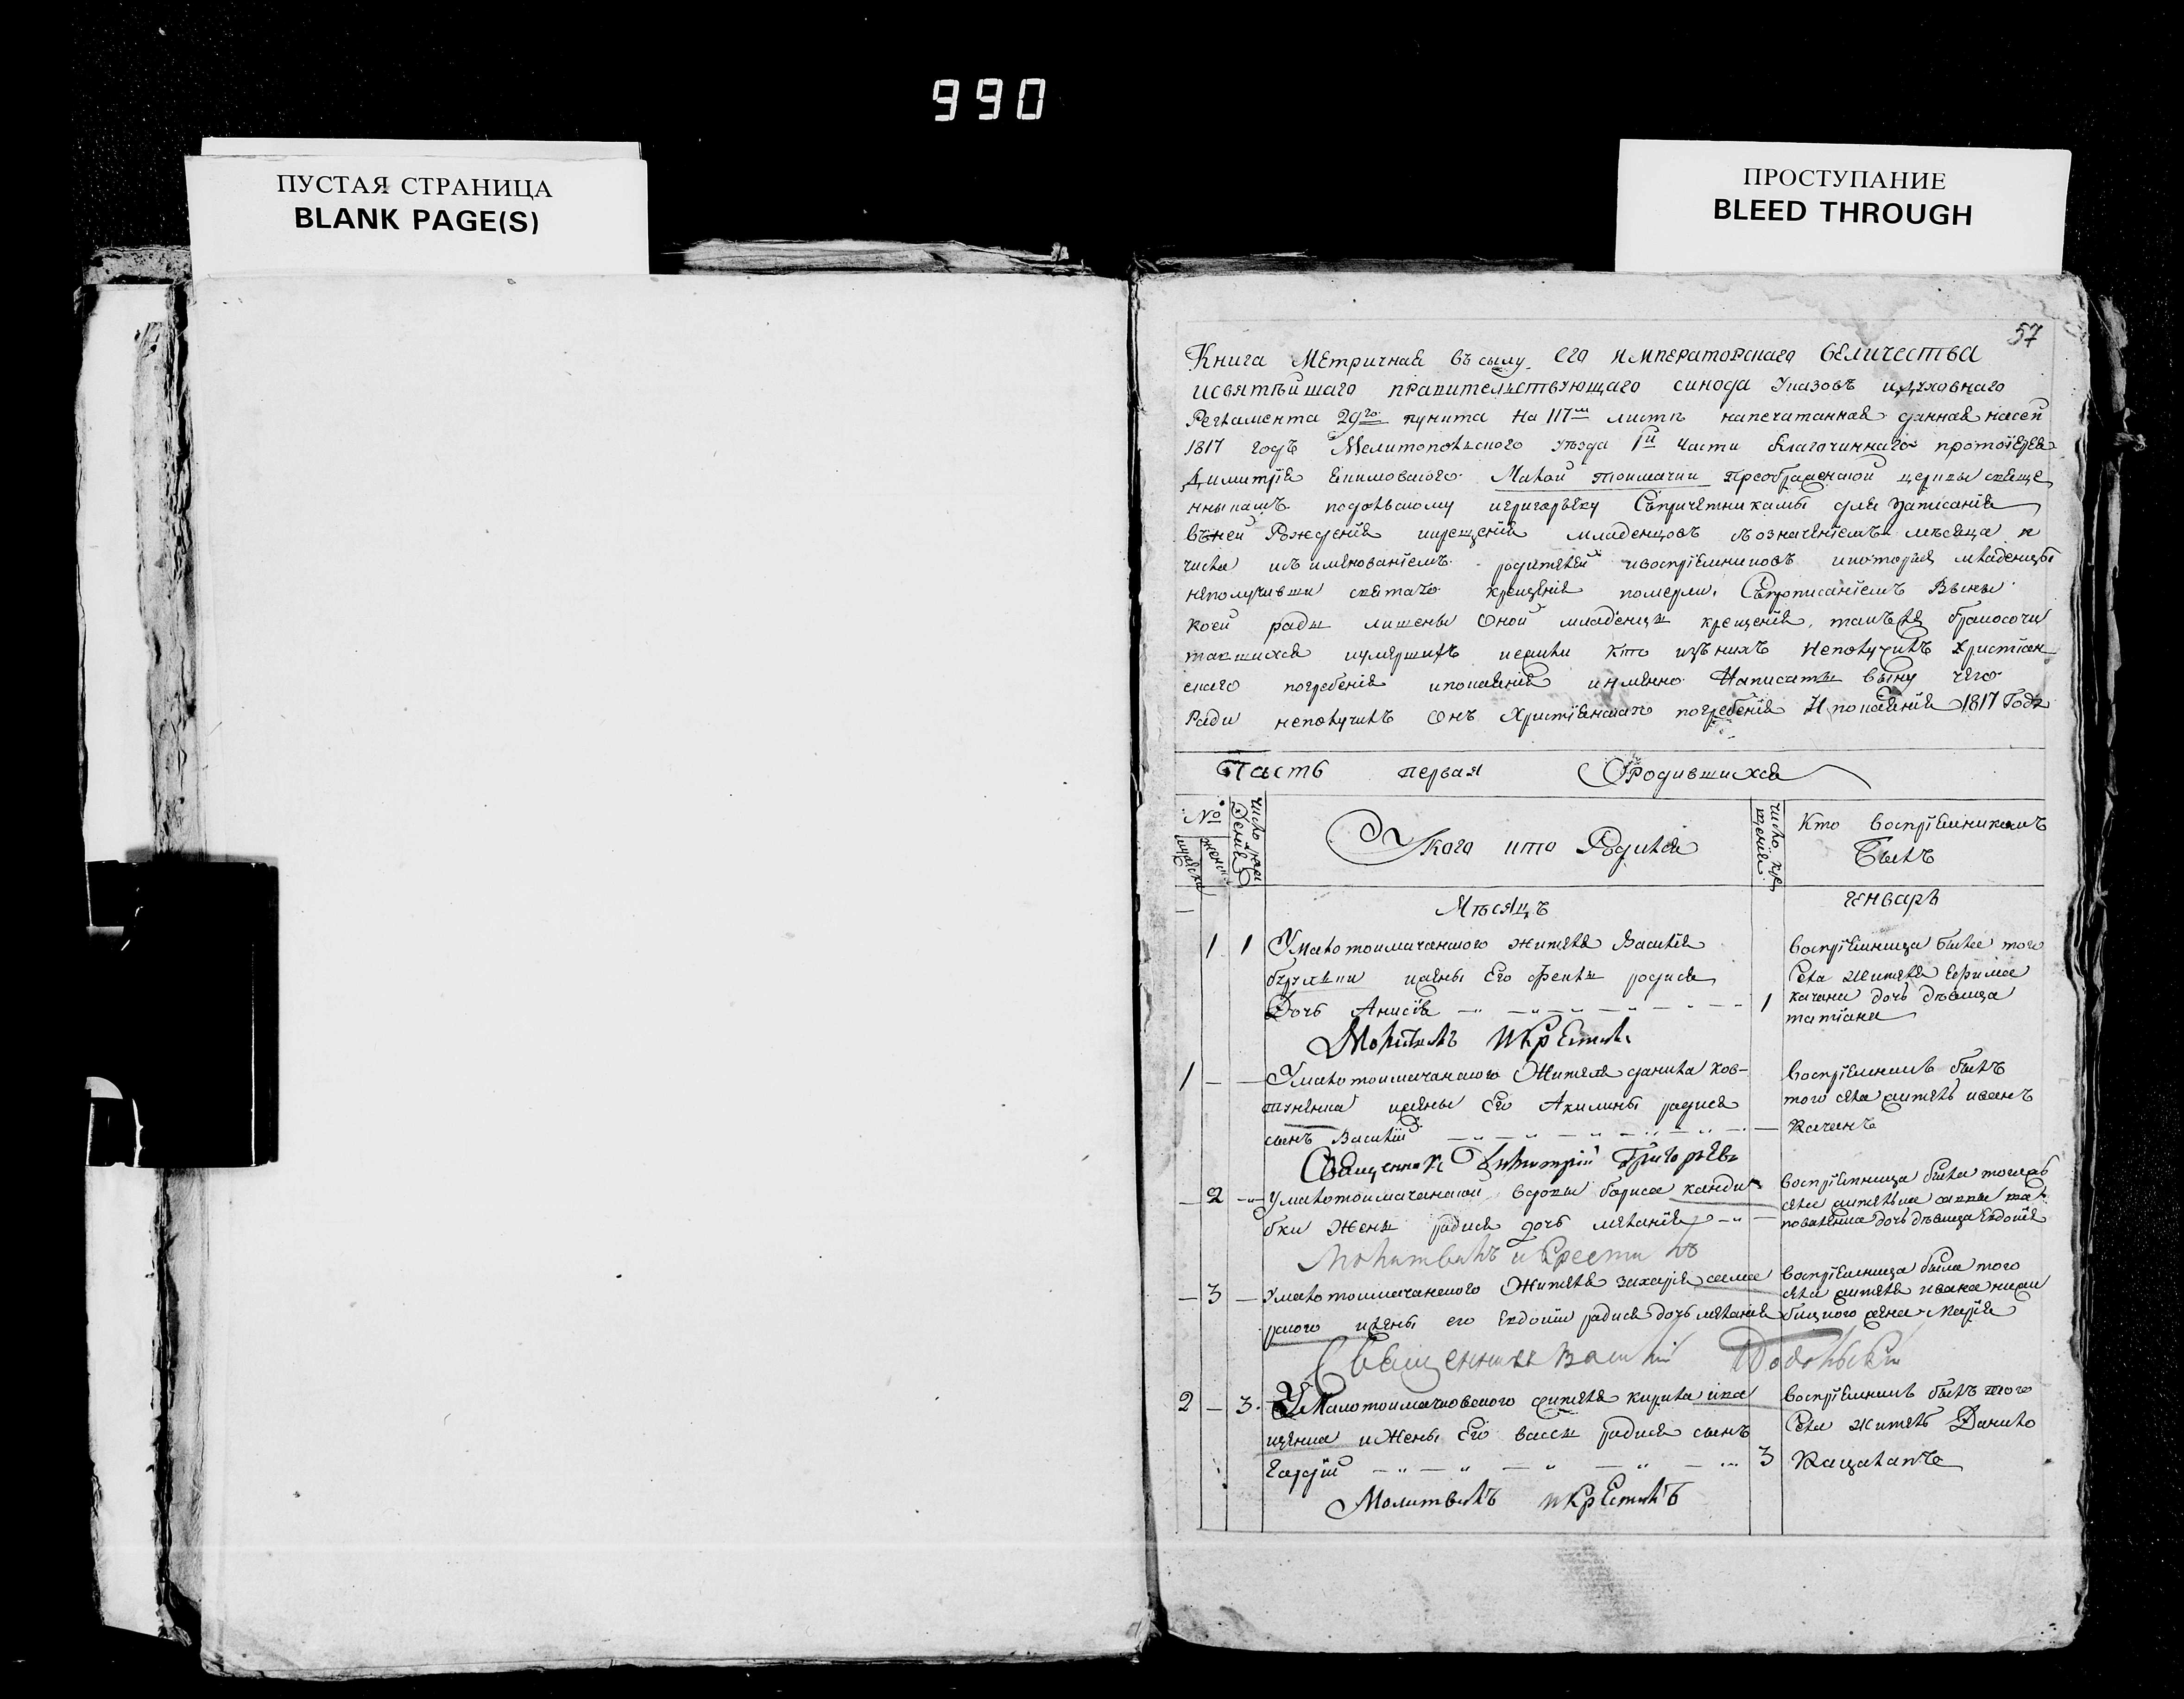 990
ПУСТАЯ СТРАНИЦА
BLANK PAGE(S)
ПРОСТУПАНИЕ
BLEED THROUGH
57
Книга Метричная въ силу его императорскаго величества
исвятѣйшаго правительствующаго синода указовъ идуховнаго
Регламента 29го пункта на 117м листѣ напечатанная данная насей
1817 годъ Мелитопольского уѣзда 1й части благочиннаго протоіерея
Димитрія Малой токмачки преображенской церквы свяще
нныкамъ подольскому игригорьеву Съпричетникамы для записанія
въней Рожденія икрещенія младенцовъ съозначеніемъ мѣсяца и
числа исъименованіемъ родителей ивоспріемниковъ икоторія младенцы
неполучивши святаго крещенія померли, Съпрописаніемъ Вины
коей рады лишены оной младенцы крещенія, такъже бракосочи
тавшихся иумершихъ иежели кто изъ нихъ Неполучилъ Христіан
скаго погребенія ипокаянія именно Написать вину чего
Ради неполучилъ Онъ Христіанскаго погребенія И покаянія 1817 Года
Часть первая О родившихся
№ мужеска женска
Число рождения
У кого кто Родился
Число крещения
Кто воспріемникомъ
Былъ
Мѣсяцъ генваръ
1 1 Умалотокмачанского жителя Василія
жены Его Феклы родися
Дочь Анисія 1
Молитвилъ икрестилъ
воспріемница была того
Села жителя Ефима
качана дочь дѣвица
татіана
1 — — Умалотокмачанского Жителя данила ков-
туненка ижены Его Акилины родися
сынъ Василій
Священникъ Димитрій Григорьевъ
воспріемникъ былъ
того села житель иванъ
Каченъ
— 2 — Умалотокмачанской вдовы бориса канди
бки Жены родися дочь меланія
Молитвилъ и Крестилъ
воспріемница была тогожъ
дочь дѣвица Евдокія
— 3 — Умалотокмачанского Жителя захарія
рского ижены его Евдокіи родися дочь меланія
Священникъ Василій Подольскій
воспріемница была того
села жителя ивана
жена Марія
2 — 3 УМалотокмачковского жителя кирила
иженка и Жены Его вассы родися сынъ
3
Молитвилъ икрестилъ
воспріемникъ былъ того
Села житель Данило
Кацалапъ